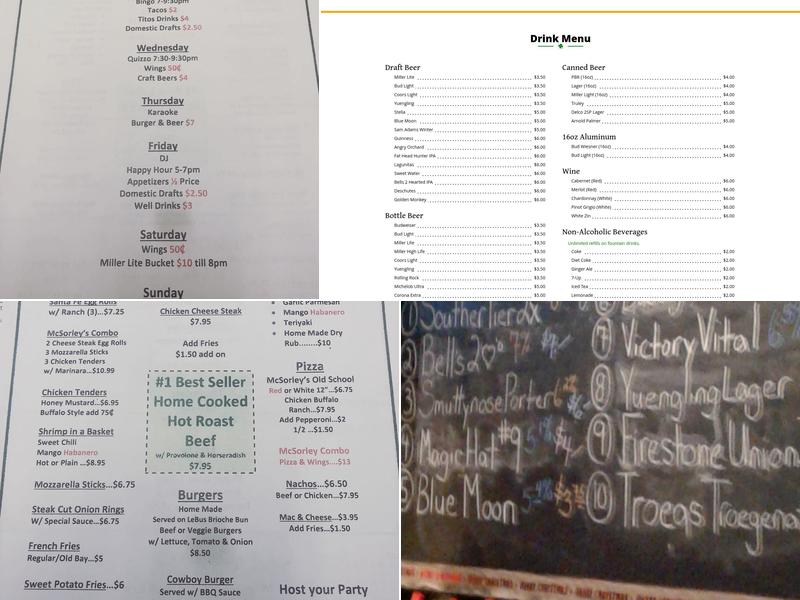 Bingo 7-9:30pm
Tacos $2
Titos Drinks $4
Domestic Drafts $2.50
Wednesday
Quizzo 7:30-9:30pm
Wings 50¢
Craft Beers $4
Thursday
Karaoke
Burger & Beer $7
Friday
DJ
Happy Hour 5-7pm
Appetizers ½ Price
Domestic Drafts $2.50
Well Drinks $3
Saturday
Wings 50¢
Miller Lite Bucket $10 till 8pm
Sunday
Drink Menu
Draft Beer
Miller Lite $3.50
Bud Light $3.50
Coors Light $3.50
Yuengling $3.50
Stella $5.00
Blue Moon $5.00
Sam Adams Winter $5.00
Guinness $6.00
Angry Orchard $6.00
Fat Head Hunter IPA $6.00
Lagunitas $6.00
Sweet Water $6.00
Bells 2 Hearted IPA $6.00
Deschutes $6.00
Golden Monkey $6.00
Bottle Beer
Budweiser $3.50
Bud Light $3.50
Miller Lite $3.50
Miller High Life $3.50
Coors Light $3.50
Yuengling $3.50
Rolling Rock $3.50
Michelob Ultra $5.00
Corona Extra $5.00
Canned Beer
PBR (16oz) $4.00
Lager (16oz) $4.00
Miller Light (16oz) $4.00
Truley $5.00
Delco 2SP Lager $5.00
Arnold Palmer $5.00
16oz Aluminum
Bud Wiesner (16oz) $4.00
Bud Light (16oz) $4.00
Wine
Cabernet (Red) $6.00
Merlot (Red) $6.00
Chardonnay (White) $6.00
Pinot Grigio (White) $6.00
White Zin $6.00
Non-Alcoholic Beverages
Unlimited refills on fountain drinks.
Coke $2.00
Diet Coke $2.00
Ginger Ale $2.00
7-Up $2.00
Iced Tea $2.00
Lemonade $2.00
Santa Fe Egg Rolls
w/ Ranch (3)...$7.25
McSorley's Combo
2 Cheese Steak Egg Rolls
3 Mozzarella Sticks
3 Chicken Tenders
w/ Marinara...$10.99
Chicken Tenders
Honey Mustard...$6.95
Buffalo Style add 75¢
Shrimp in a Basket
Sweet Chili
Mango Habanero
Hot or Plain ...$8.95
Mozzarella Sticks...$6.75
Steak Cut Onion Rings
W/ Special Sauce...$6.75
French Fries
Regular/Old Bay...$5
Sweet Potato Fries...$6
Chicken Cheese Steak
$7.95
Add Fries
$1.50 add on
#1 Best Seller
Home Cooked
Hot Roast
Beef
w/ Provolone & Horseradish
$7.95
Burgers
Home Made
Served on LeBus Brioche Bun
Beef or Veggie Burgers
w/ Lettuce, Tomato & Onion
$8.50
Cowboy Burger
Served w/ BBQ Sauce
Garlic Parmesan
Mango Habanero
Teriyaki
Home Made Dry
Rub......$10
Pizza
McSorley's Old School
Red or White 12"...$6.75
Chicken Buffalo
Ranch...$7.95
Add Pepperoni...$2
1/2 ...$1.50
McSorley Combo
Pizza & Wings....$13
Nachos...$6.50
Beef or Chicken...$7.95
Mac & Cheese...$3.95
Add Fries...$1.50
Host your Party
Bells
Smuttynose Porter
Magic Hat #9 $4
Blue Moon
7 Victory Vital
8 Yuengling Lager
9 Firestone
10 Troegs